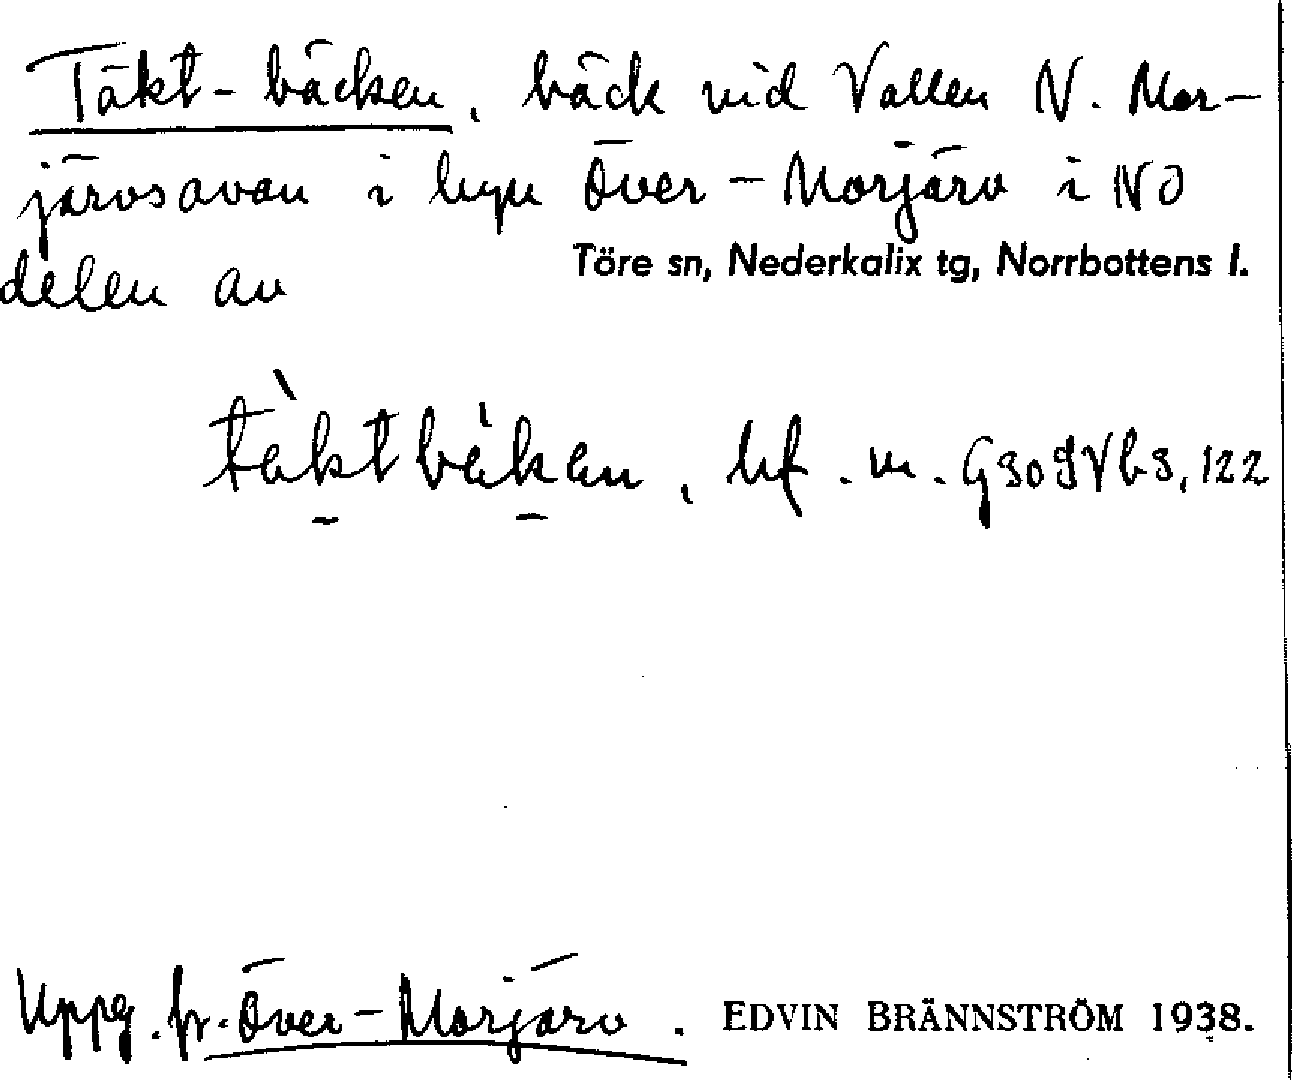 Täkt-bäcken, bäck vid Vallen N. Mor-
järvsavan i byn Över-Morjärv i NO
delen av Töre sn, Nederkalix tg, Norrbottens l.
tὰktbäkən, bf. m. GgogVb3,122
Uppg. fr. Över-Morjärv. EDVIN BRÄNNSTRÖM 1938.